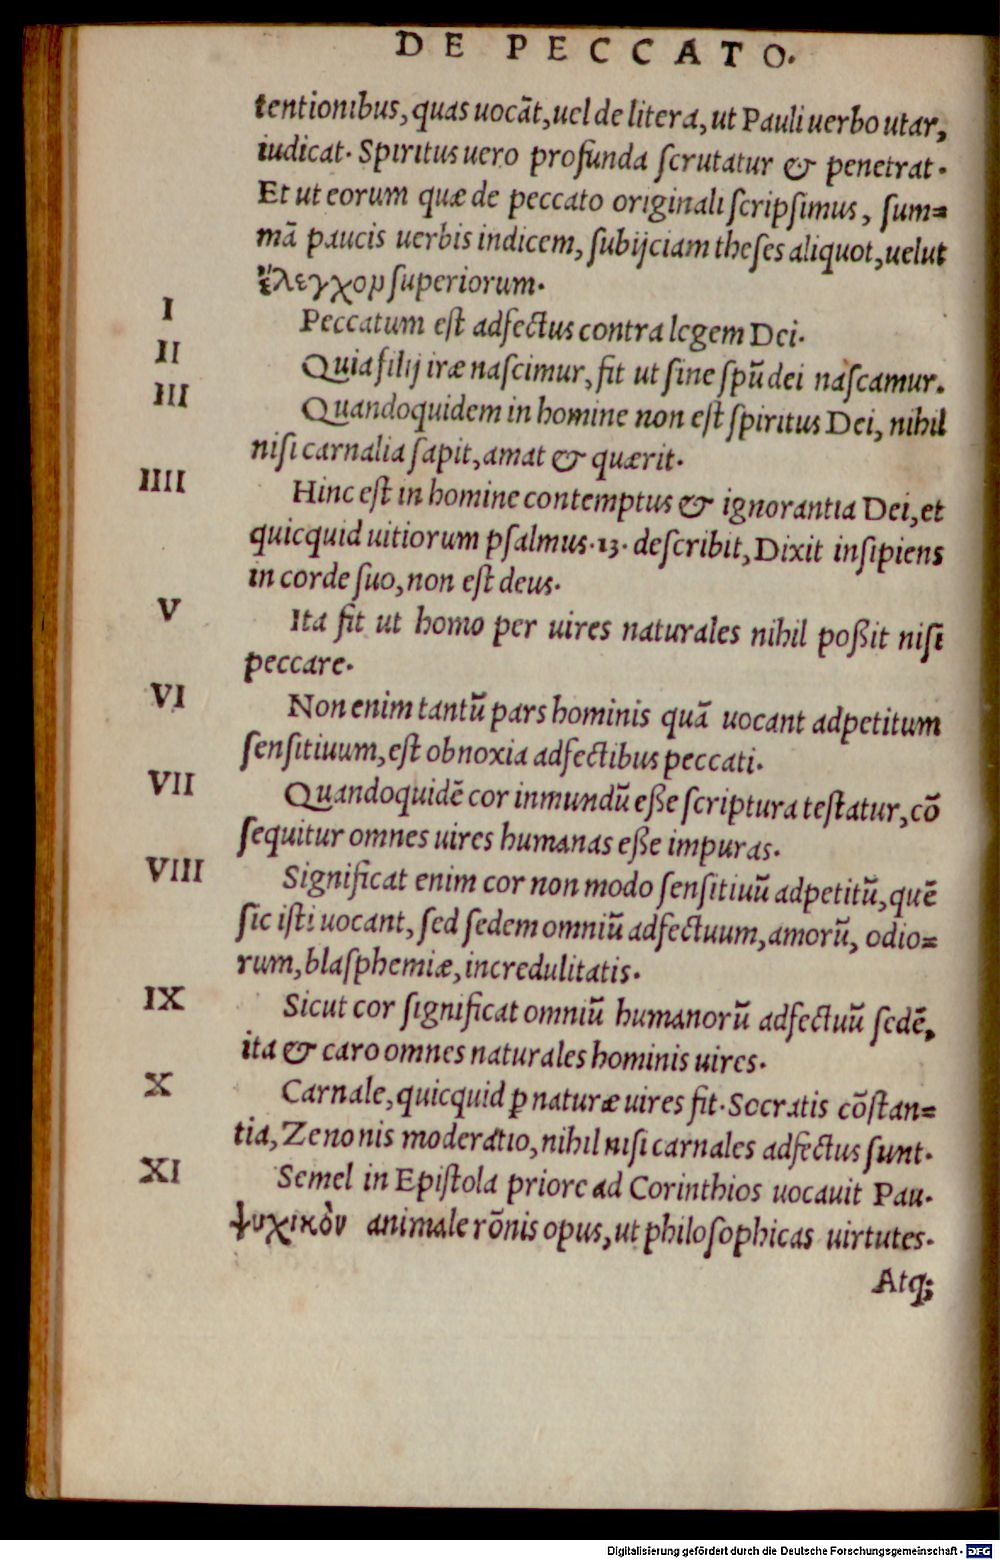 DE PECCATO.
tentionibus, quas uocāt, uel de litera, ut Pauli uerbo utar,
iudicat. Spiritus uero profunda ſcrutatur & penetrat.
Et ut eorum quæ de peccato originali ſcripſimus, ſum=
mā paucis uerbis indicem, ſubijciam theſes aliquot, uelut
ἔλεγχον ſuperiorum.
I Peccatum eſt adfectus contra legem Dei.
II Quia filij iræ naſcimur, fit ut ſine ſpū dei naſcamur.
III Quandoquidem in homine non eſt ſpiritus Dei, nihil
niſi carnalia ſapit, amat & quærit.
IIII Hinc eſt in homine contemptus & ignorantia Dei, et
quicquid uitiorum pſalmus .13. deſcribit, Dixit inſipiens
in corde ſuo, non eſt deus.
V Ita fit ut homo per uires naturales nihil poßit niſi
peccare.
VI Non enim tantū pars hominis quā uocant adpetitum
ſenſitiuum, eſt obnoxia adfectibus peccati.
VII Quandoquidē cor inmundū eße ſcriptura teſtatur, cō
ſequitur omnes uires humanas eße impuras.
VIII Significat enim cor non modo ſenſitiuū adpetitū, quē
ſic iſti uocant, ſed ſedem omniū adfectuum, amorū, odio=
rum, blaſphemiæ, incredulitatis.
IX Sicut cor ſignificat omniū humanorū adfectuū ſedē,
ita & caro omnes naturales hominis uires.
X Carnale, quicquid ꝑ naturæ uires fit. Socratis cōſtan=
tia, Zenonis moderatio, nihil niſi carnales adfectus ſunt.
XI Semel in Epiſtola priore ad Corinthios uocauit Pau.
ψυχικὸν animale rōnis opus, ut philoſophicas uirtutes.
Atq;
Digitalisierung gefördert durch die Deutsche Forschungsgemeinschaft - DFG